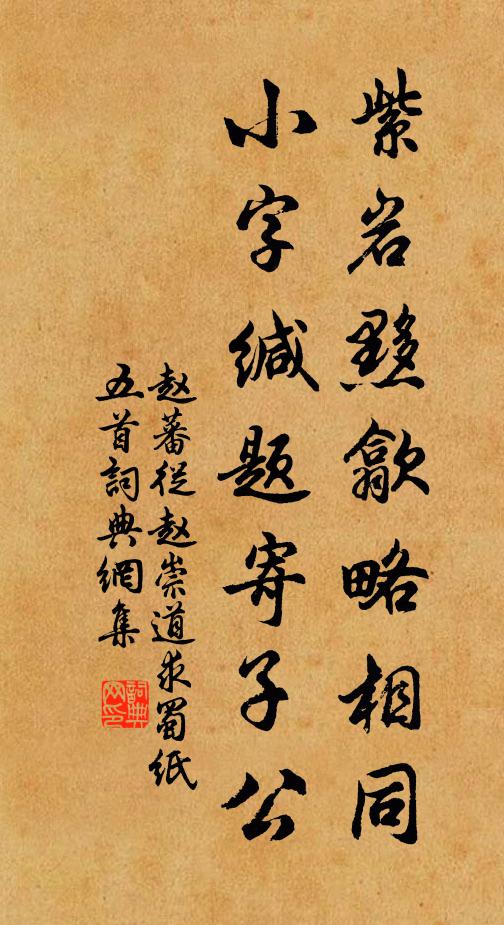 紫岩黟歙略相同
小字缄题寄子公
赵蕃從赵崇道求蜀纸
五首詞典網集
詞典
网印